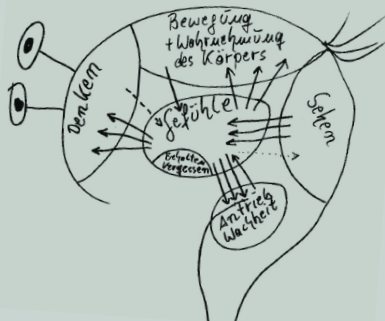 Bewegung
+ Wahrnehmung
des Körpers
Denken
Gefühle
Sehen
Behalten
Vergessen
Antrieb
Wachheit